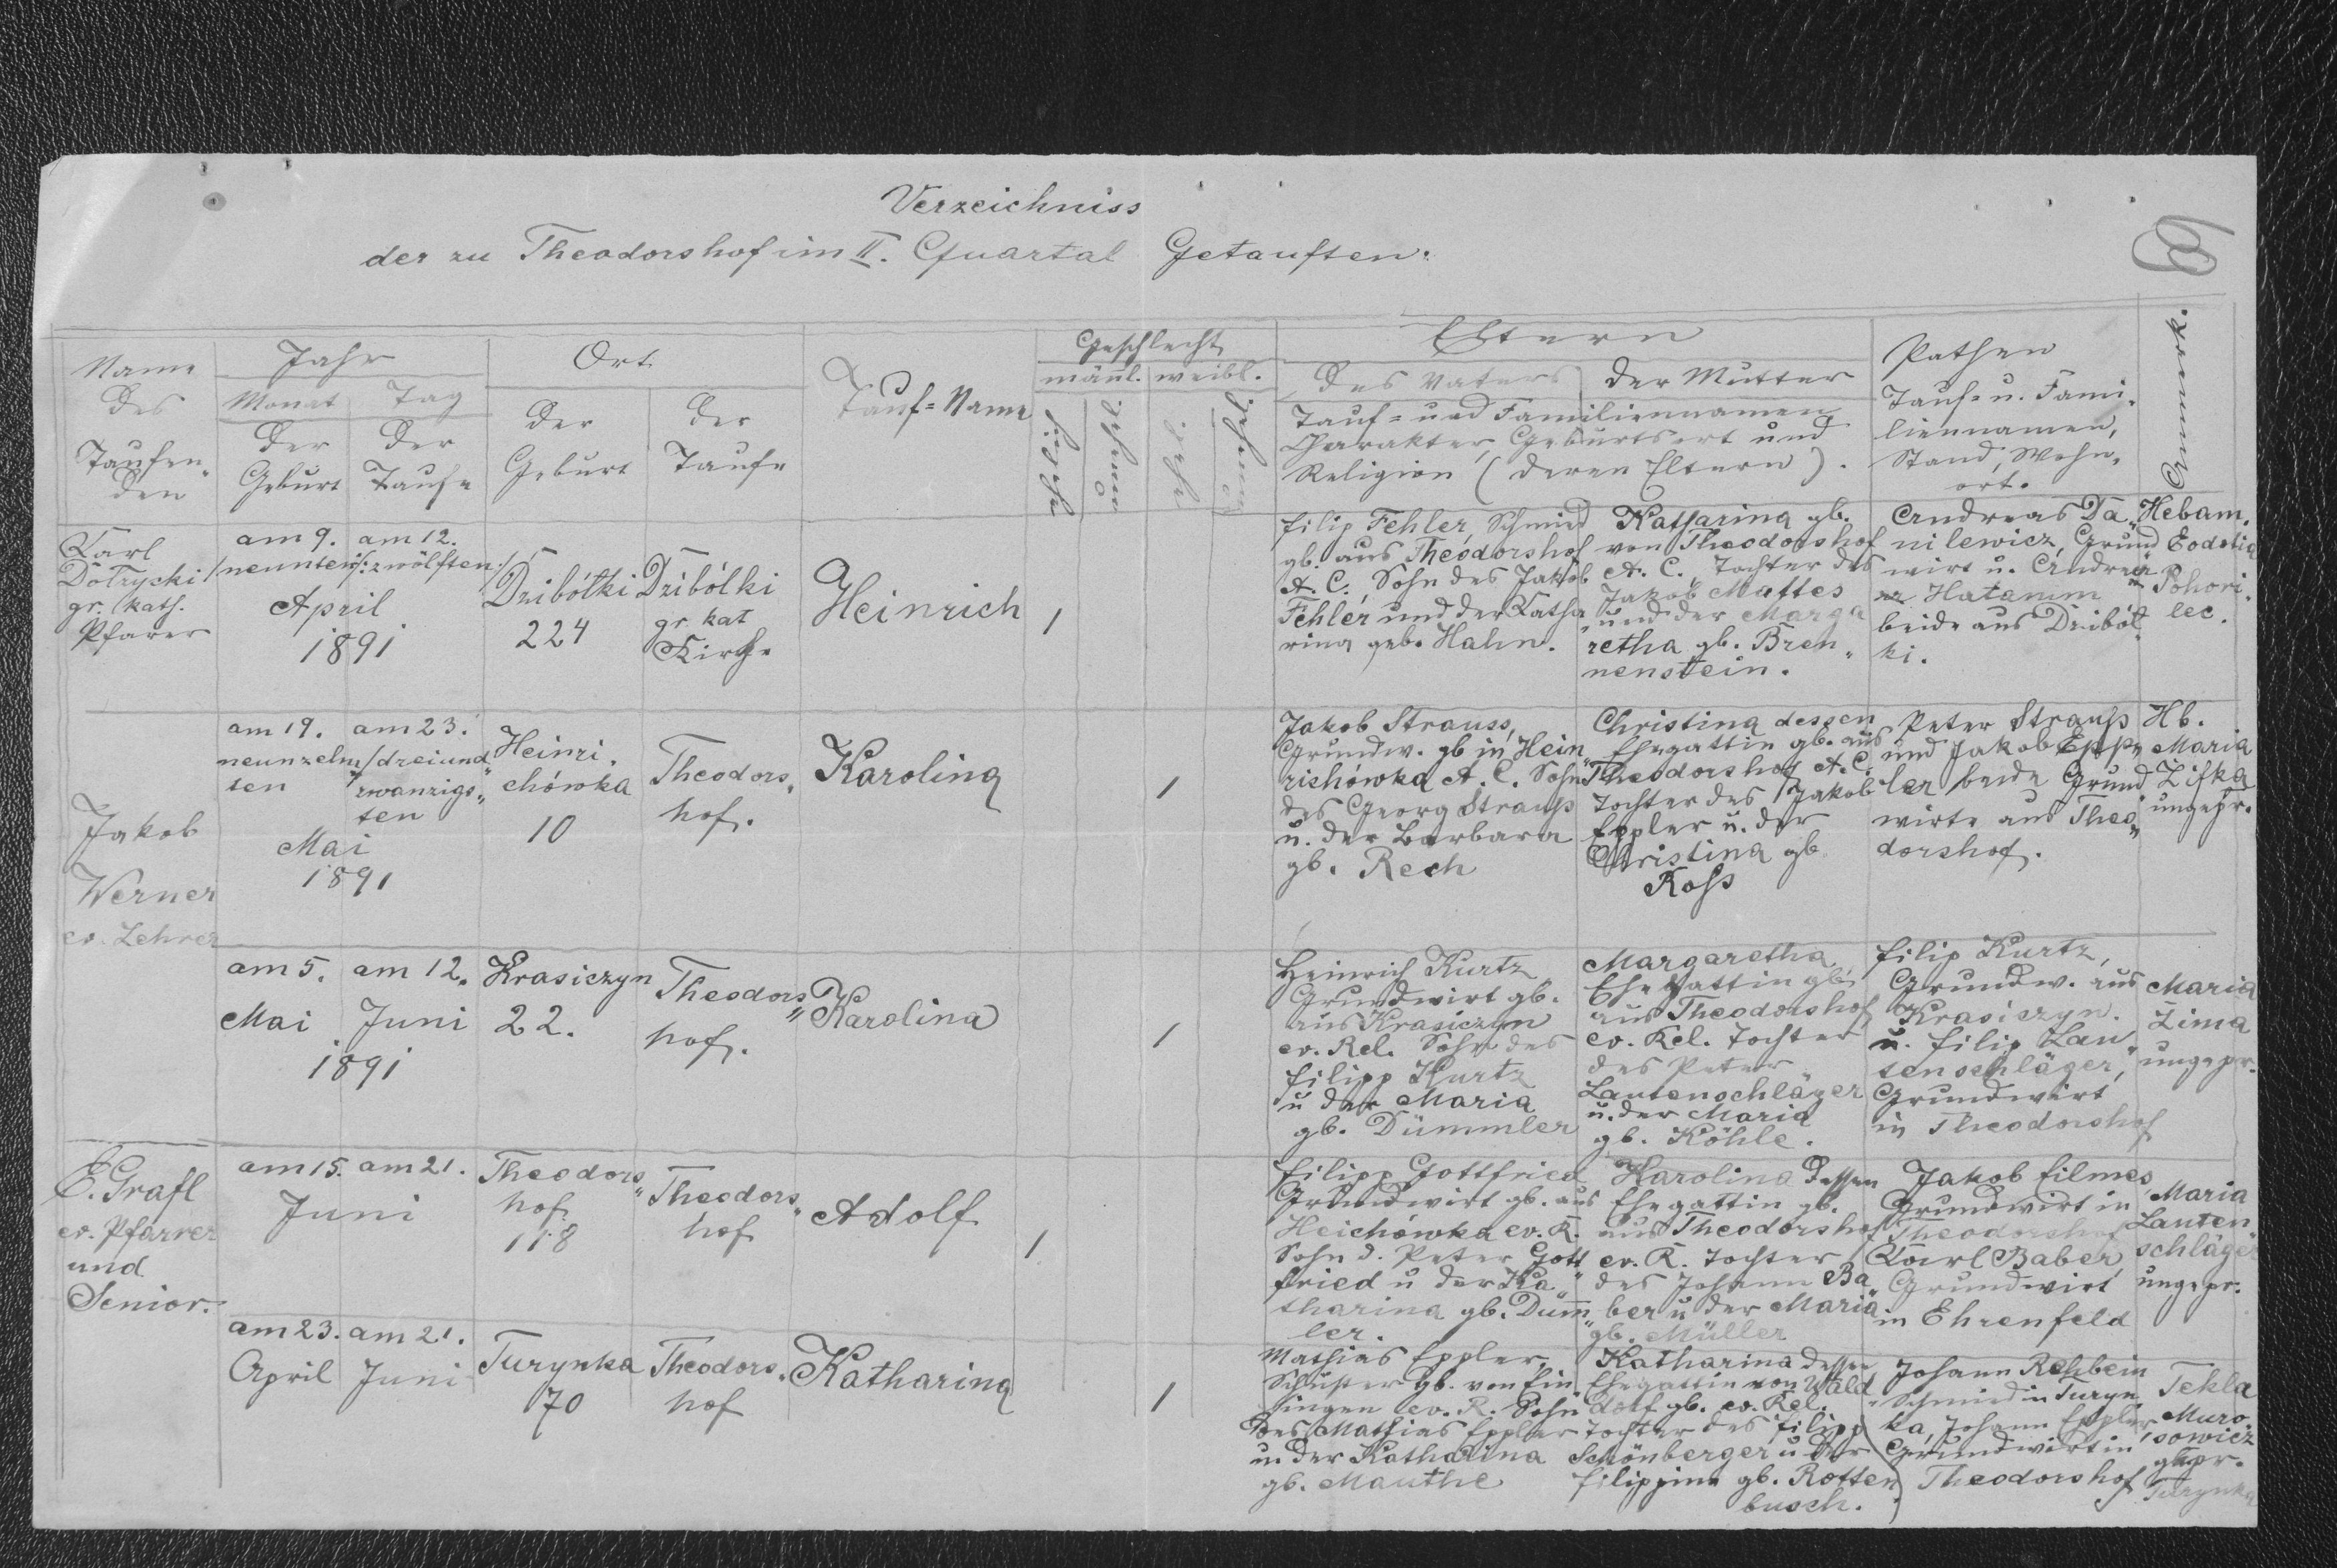 Verzeichniss
der zu Theodorshof im II. Quartal Getauften.
6
Name
des
Taufen„
den
Jahr
Monat
Tag
der
Geburt
der
Taufe
Ort
der
Geburt
der
Taufe
Tauf=Name
Geschlecht
männl.
weibl.
Eltern
des Vaters
der Mutter
Tauf= und Familiennamen
Charakter, Geburtsort und
Religion (deren Eltern).
Pathen
Tauf= u. Fami„
liennamen,
Stand, Wohn„
ort.
Karl
Dołrycki
gr. kath.
Pfarer
am 9.
/neunten/
am 12.
/:zwölften:/
April
1891
Dzibółki
224
Dzibólki
gr. kat
Kirche
Heinrich
1
Filip Fehler, Schmied
gb. aus Theodorshof
A. C. Sohn des Jakob
Fehler und der Katha
rina geb. Hahn.
Katharina gb.
von Theodorshof
A. C. Tochter des
Jakob Mattes
und der Marga
retha gb. Bren„
nenstein.
Andreas Da„
nilewicz, Grund
wirt u. Andrea
Hatamm
beide aus Dziból„
ki.
Hebam.
Eodotia
Pohori„
lec.
Jakob
Werner
ev. Lehrer
am 19.
neunzehn
ten
am 23.
/dreiund
zwanzigs„
ten
Mai
1891
Heinri„
chówka
10
Theodors„
hof.
Karolina
1
Jakob Strauss,
Grundw. gb in Hein„
richówka A. C. Sohn
des Georg Strauss
u. der Barbara
gb. Rech
Christina dessen
Ehegattin gb. aus
Theodorshof A. C.
Tochter des Jakob
Eppler u. der
Christina gb.
Ross
Peter Strauss
und Jakob Epp„
ler beide Grund
wirte aus Theo„
dorshof.
Hb.
Maria
Zifka
ungepr.
am 5.
Mai
am 12.
Juni
1891
Krasiczyn
22.
Theodors„
hof.
Karolina
1
Heinrich Kurtz
Grundwirt gb.
aus Krasiczyn
ev. Rel. Sohn des
Filipp Kurtz
u der Maria
gb. Dümmler
Margaretha
Ehegattin gb.
aus Theodorshof
ev. Rel. Tochter
des Peter
Lautenschläger
u. der Maria
gb. Köhle.
Filip Kurtz,
Grundw. aus
Krasiczyn.
u. Filip Lau„
tenschläger,
Grundwirt
in Theodorshof
Maria
Zima
ungepr.
E. Grafl
ev. Pfarrer
und
Senior.
am 15.
am 21.
Juni
Theodors„
hof
118
Theodors„
hof
Adolf
1
Filipp Gottfried
Grundwirt gb. aus
Heichówka ev. R.
Sohn d. Peter Gott
fried u der Ka„
tharina gb. Dümm„
ler.
Karolina dessen
Ehegattin gb.
aus Theodorshof
ev. R. Tochter
des Johann Ba„
ber u der Maria
gb. Müller
Jakob Filmes
Grundwirt in
Theodorshof
Karl Baber
Grundwirt
in Ehrenfeld
Maria
Lauten
schläger
ungepr.
am 23.
April
am 21.
Juni
Turynka
70
Theodors„
hof
Katharina
1
Mathias Eppler,
Schuster gb. von Ein
singen ev. R. Sohn
des Mathias Eppler
u der Katharina
gb. Mauthe
Katharina dessen
Ehegattin von Wald
dorf gb. ev. Rel.
Tochter des Filipp
Schönberger u der
Filippine gb. Rotten
busch.
Johann Rehbein
Schmied in Turyn„
ka, Johann Eppler
Grundwirt in
Theodorshof
Tekla
Muro„
sowicz
gepr.
Turynka